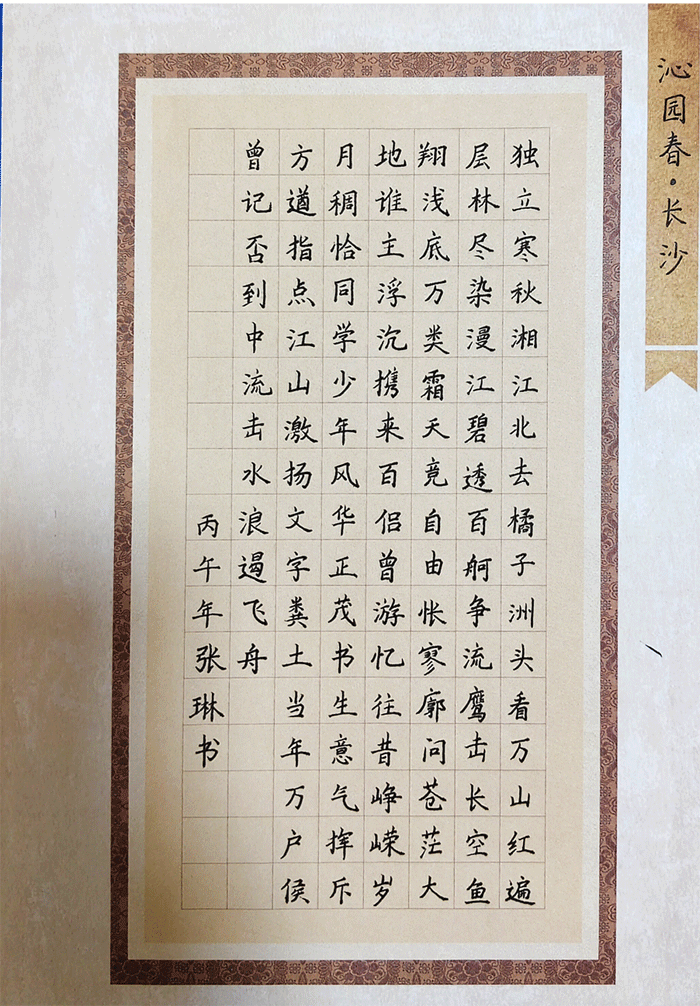 沁园春·长沙
独立寒秋湘江北去橘子洲头看万山红遍
层林尽染漫江碧透百舸争流鹰击长空鱼
翔浅底万类霜天竟自由怅寥廓问苍茫大
地谁主浮沉携来百侣曾游忆往昔峥嵘岁
月稠恰同学少年风华正茂书生意气挥斥
方遒指点江山激扬文字粪土当年万户侯
曾记否到中流击水浪遏飞舟
丙午年张琳书